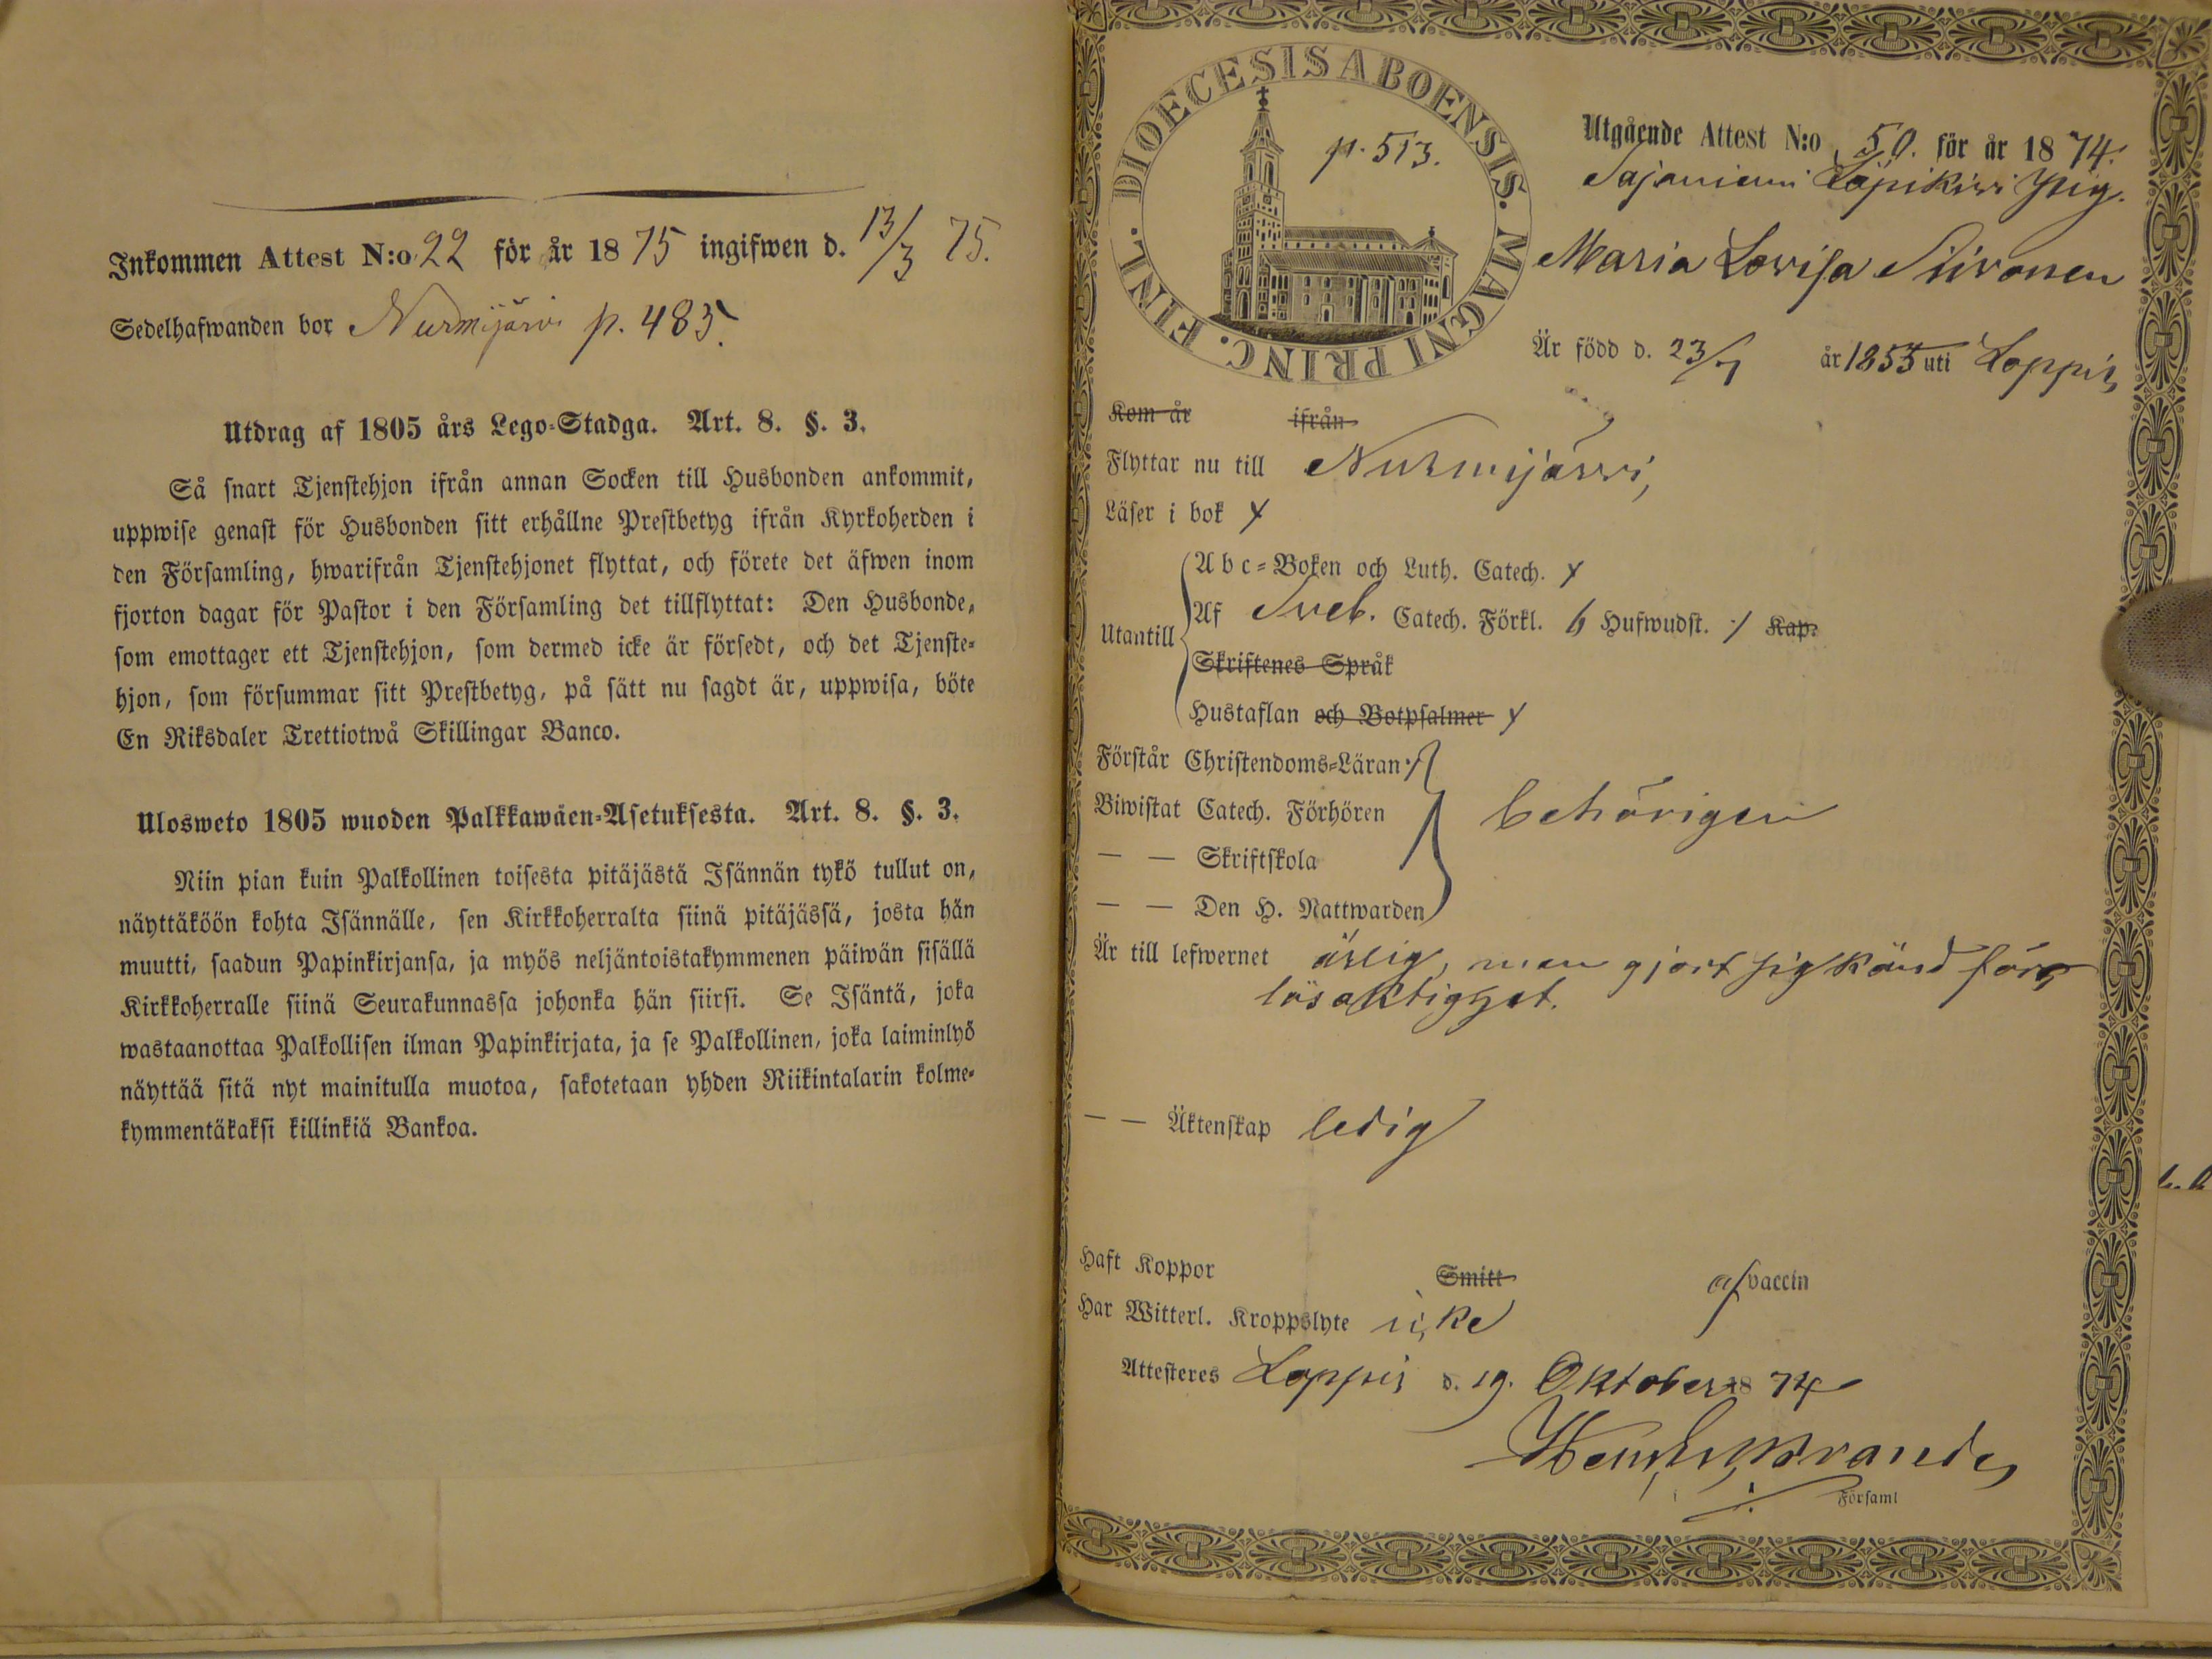 Inkommen Attest N:o 22 för år 1875 ingifwen d. 13/3 75.
Sedelhafwanden bor Nurmijärvi p. 485.
Utdrag af 1805 års Lego-Stadga. Art. 8. §. 3.
Så snart Tjenstehjon ifrån annan Socken till Husbonden ankommit,
uppwise genast för Husbonden sitt erhållne Prestbetyg ifrån Kyrkoherden i
den Församling, hwarifrån Tjenstehjonet flyttat, och förete det äfwen inom
fjorton dagar för Pastor i den Församling det tillflyttat: Den Husbonde,
som emottager ett Tjenstehjon, som dermed icke är försedt, och det Tjenste-
hjon, som försummar sitt Prestbetyg, på sätt nu sagdt är, uppwisa, böte
En Riksdaler Trettiotwå Skillingar Banco.
Ulosweto 1805 wuoden Palkkawäen-Asetuksesta. Art. 8. §. 3.
Niin pian kuin Palkollinen toisesta pitäjästä Isännän tykö tullut on,
näyttäköön kohta Isännälle, sen Kirkkoherralta siinä pitäjässä, josta hän
muutti, saadun Papinkirjansa, ja myös neljäntoistakymmenen päiwän sisällä
Kirkkoherralle siinä Seurakunnassa johonka hän siirsi. Se Isäntä, joka
wastaanottaa Palkollisen ilman Papinkirjata, ja se Palkollinen, joka laiminlyö
näyttää sitä nyt mainitulla muotoa, sakotetaan yhden Riikintalarin kolme-
kymmentäkaksi killinkiä Bankoa.
DIOECESIS ABOENSIS. MAGNI PRINC. FINL.
p. 513.
Utgående Attest N:o 50. för år 1874.
Sajaniemi Läpikivi Pig.
Maria Lovisa Siivonen
Är född d. 23/7 år 1855 uti Loppis
Kom år ifrån
Flyttar nu till Nurmijärvi,
Läser i bok
Abc-Boken och Luth. Catech.
Utantill Af Sveb. Catech. Förkl. 6 Hufwudst. Kap.
Skriftenes Språk
Hustaflan och Botpsalmer
Förstår Christendoms-Läran
Biwistat Catech. Förhören behörigen
— — Skriftskola
— — Den H. Nattwarden
Är till lefwernet ärlig, men gjort sig känd för
lösaktighet.
— — Äktenskap ledig
Haft Koppor Smitt af vaccin
Har Witterl. Kroppslyte icke
Attesteres Loppis d. 19. Oktober 1874
Församl